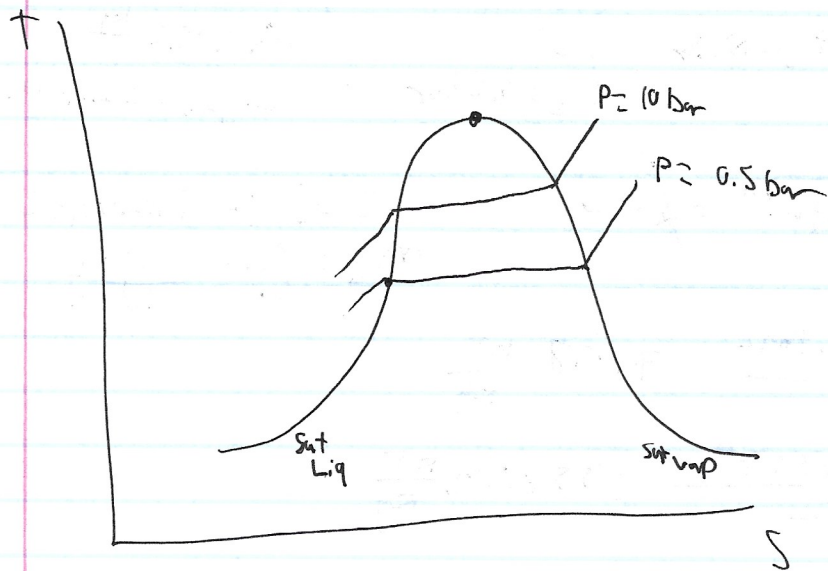 T
P= 10 bar
P= 0.5 bar
Sat
Liq
Sat vap
S